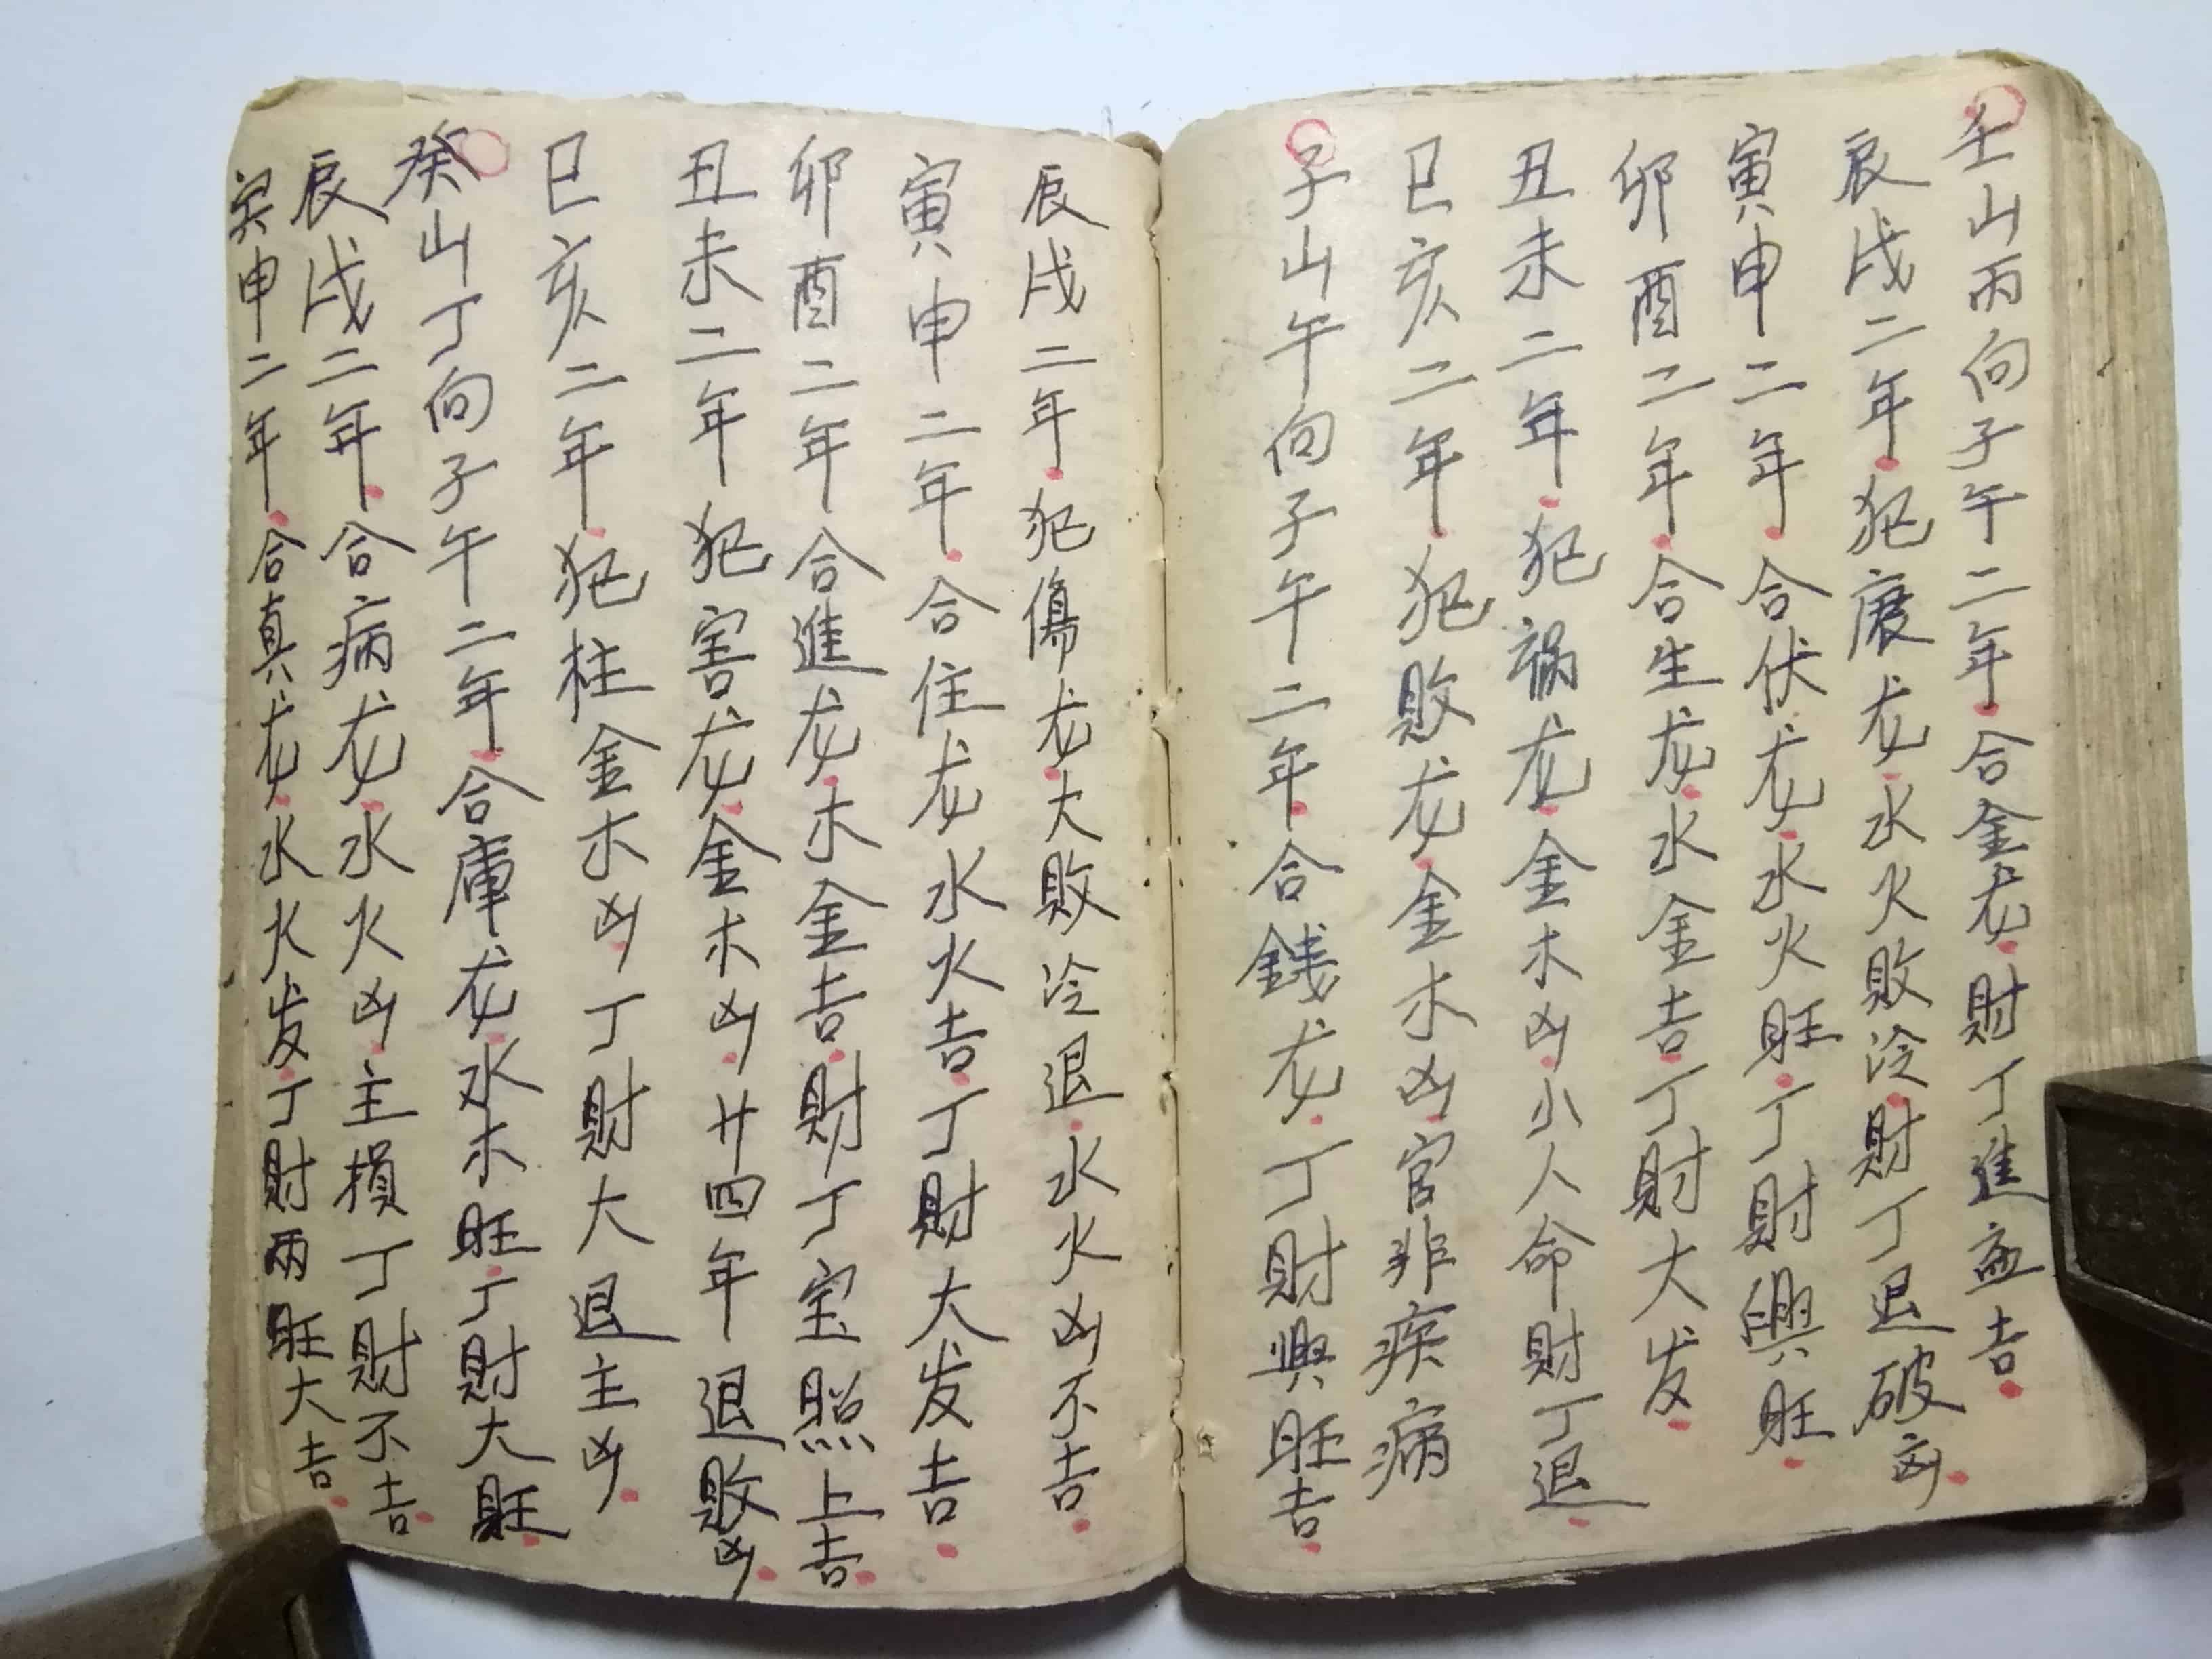 壬山丙向子午二年合金龙财丁進益吉
辰戌二年犯废龙水火败冷财丁退破凶
寅申二年合伏龙水火旺丁财興旺
卯酉二年合生龙水金吉丁财大发
丑未二年犯祸龙金木凶小人命财丁退
巳亥二年犯败龙金木凶官非疾病
子山午向子午二年合銭龙丁财興旺吉
辰戌二年犯傷龙大败冷退水火凶不吉
寅申二年合住龙水火吉丁财大发吉
卯酉二年合進龙木金吉财丁宝照上吉
丑未二年犯害龙金木凶廿四年退败凶
巳亥二年犯柱金木凶丁财大退主凶
癸山丁向子午二年合庫龙水木旺丁财大旺
辰戌二年合病龙水火凶主損丁财不吉
寅申二年合真龙水火发丁财两旺大吉